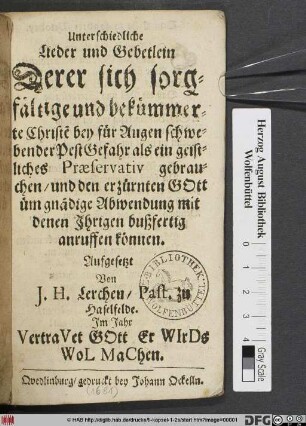 Unterschiedliche
Lieder und Gebetlein
Derer sich sorg-
fältige und bekümmer-
te Christē bey für Augen schwe-
bender Pest Gefahr als ein geist-
liches Præservativ gebrau-
chen / und den erzürnten GOtt
üm gnädige Abwendung mit
denen Ihrigen bußfertig
anruffen können.
Aufgesetzt
Von
J. H. Lerchen / Past. zu
Haselfelde.
Im Jahr
VertraVet GOtt Er WIrDs
WoL MaChen.
Qvedlinburg / gedruckt bey Johann Ockelln.
(1681)
BIBLIOTHEK
WOLFENBÜTTEL
Herzog August Bibliothek
Wolfenbüttel
0 1 2 3 4
Gray Scale
DFG